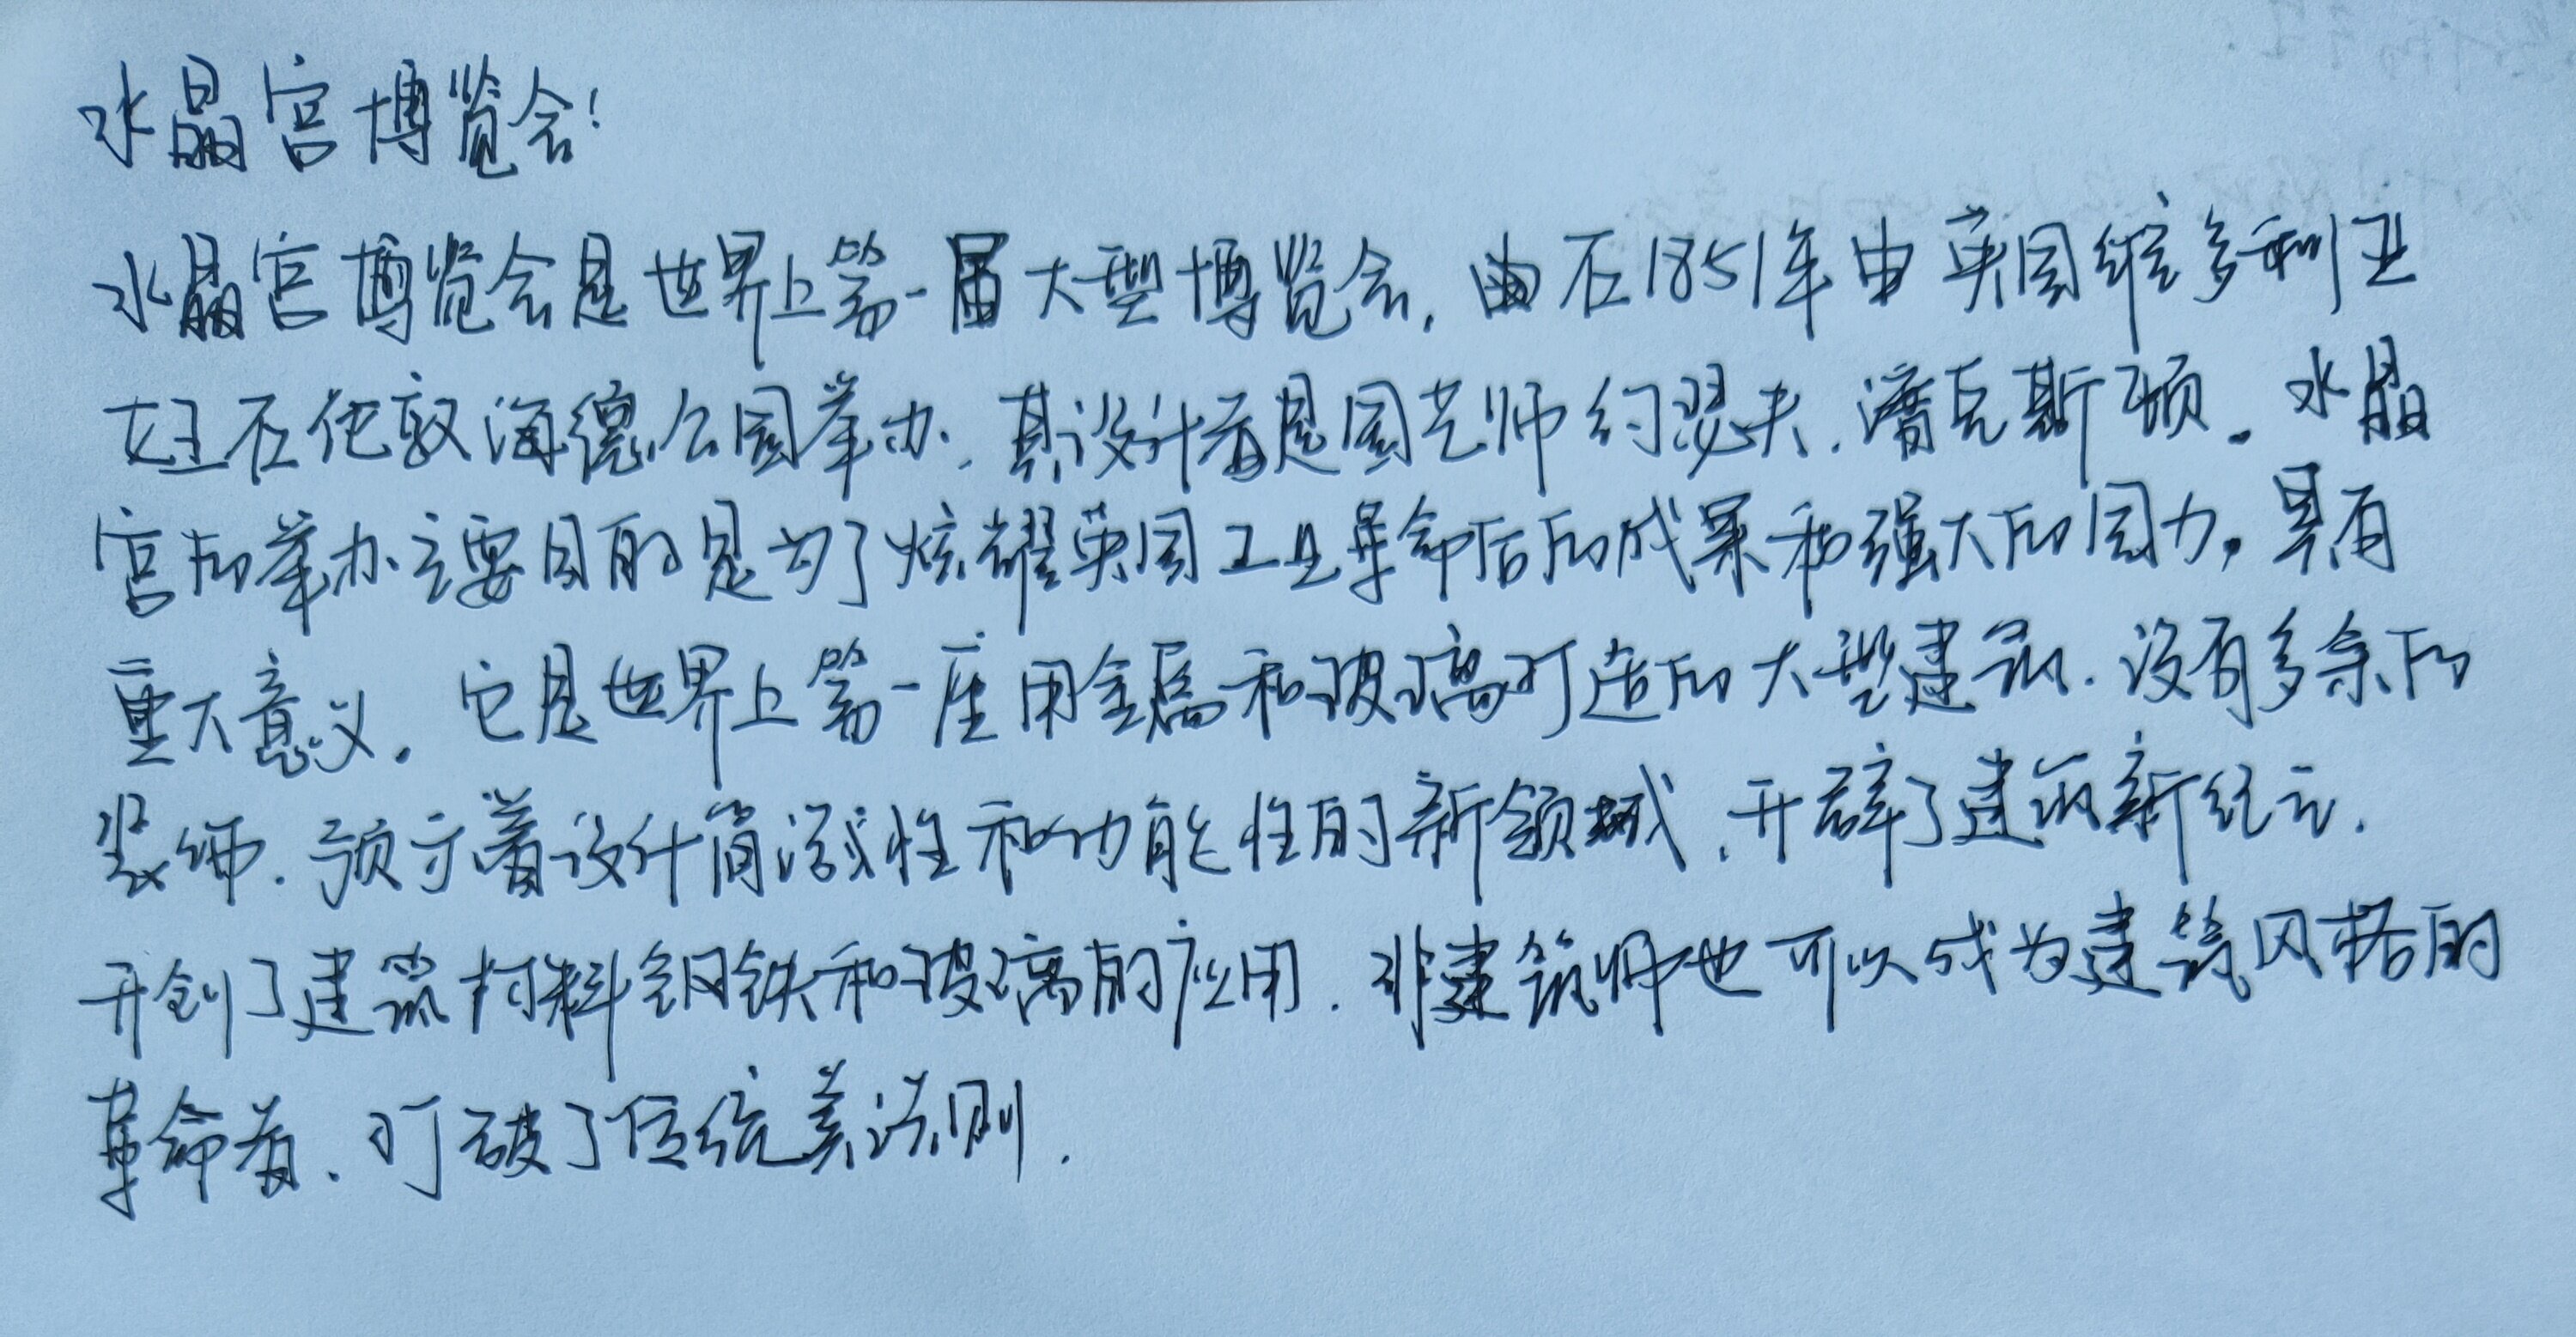 水晶宫博览会:
水晶宫博览会是世界上第一届大型博览会,由在1851年由英国维多利亚
女王在伦敦海德公园举办,其设计者是园艺师约瑟夫.潘克斯顿。水晶
宫的举办主要目的是为了炫耀英国工业革命后的成果和强大的国力,具有
重大意义。它是世界上第一座用金属和玻璃打造的大型建筑.没有多余的
装饰.预示着设计简洁性和功能性的新领域,开辟了建筑新纪元.
开创了建筑材料钢铁和玻璃的应用.非建筑师也可以成为建筑风格的
革命者.打破了传统美法则.